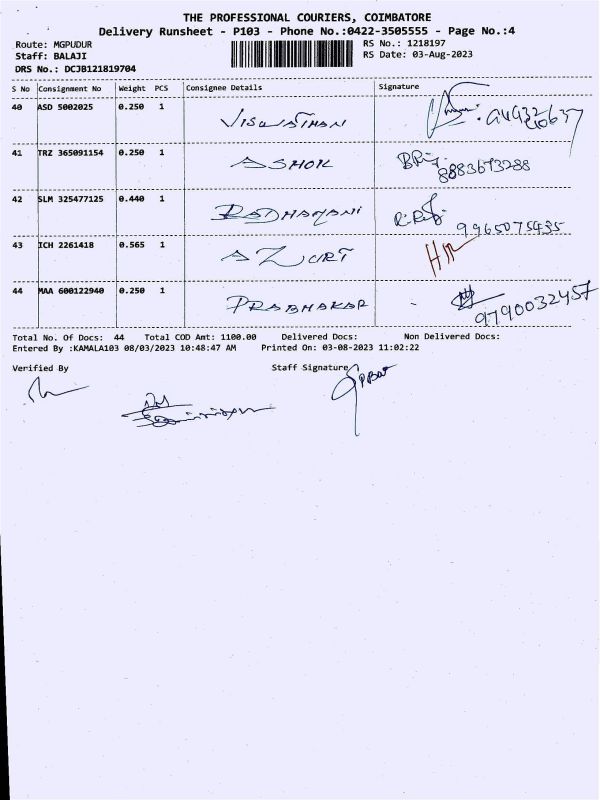 THE PROFESSIONAL COURIERS, COIMBATORE
Delivery Runsheet - P103 - Phone No.:0422-3505555 - Page No.:4
Route: MGPUDUR
RS No.: 1218197
Staff: BALAJI
RS Date: 03-Aug-2023
DRS No.: DCJB121819704
S No Consignment No Weight PCS Consignee Details Signature
40 ASD 5002025 0.250 1 VISWATHAN
41 TRZ 365091154 0.250 1 ASHOK 8883673288
42 SLM 325477125 0.440 1 RADHAMANI 9965075435
43 ICH 2261418 0.565 1
44 MAA 600122940 0.250 1 PRABHAKAR 9790032457
Total No. Of Docs: 44 Total COD Amt: 1100.00 Delivered Docs: Non Delivered Docs:
Entered By :KAMALA103 08/03/2023 10:48:47 AM Printed On: 03-08-2023 11:02:22
Verified By Staff Signature